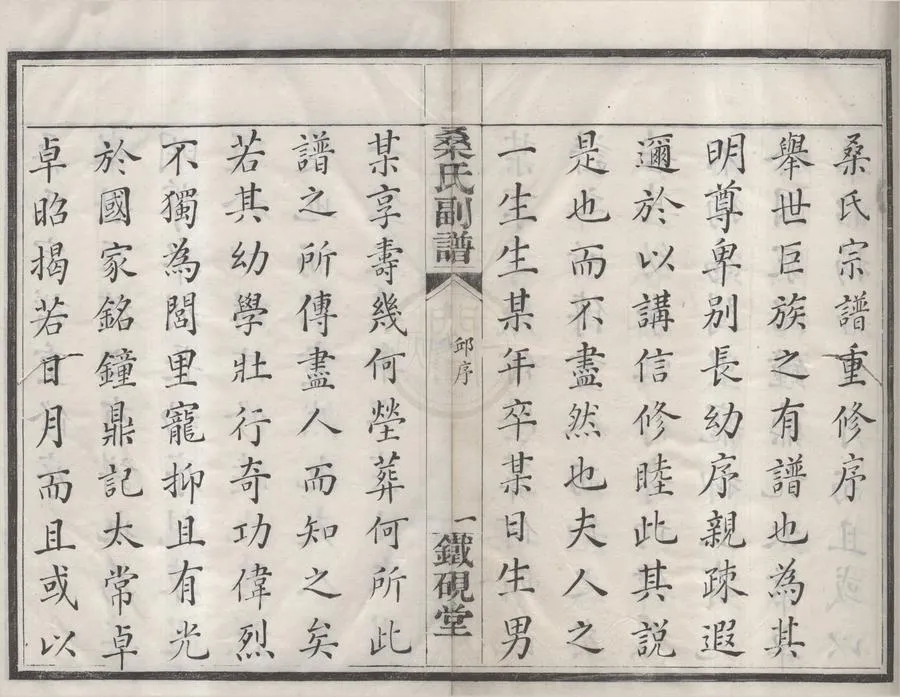 桑氏宗譜重修序
舉世巨族之有譜也為其
明尊卑別長幼序親疎遐
邇於以講信修睦此其説
是也而不盡然也夫人之
一生生某年卒某日生男
桑氏副譜
邱序
一
鐵硯堂
某享壽幾何塋葬何所此
譜之所傳盡人而知之矣
若其幼學壯行奇功偉烈
不獨為閭里寵抑且有光
於國家銘鐘鼎記太常卓
卓昭揭若日月而且或以